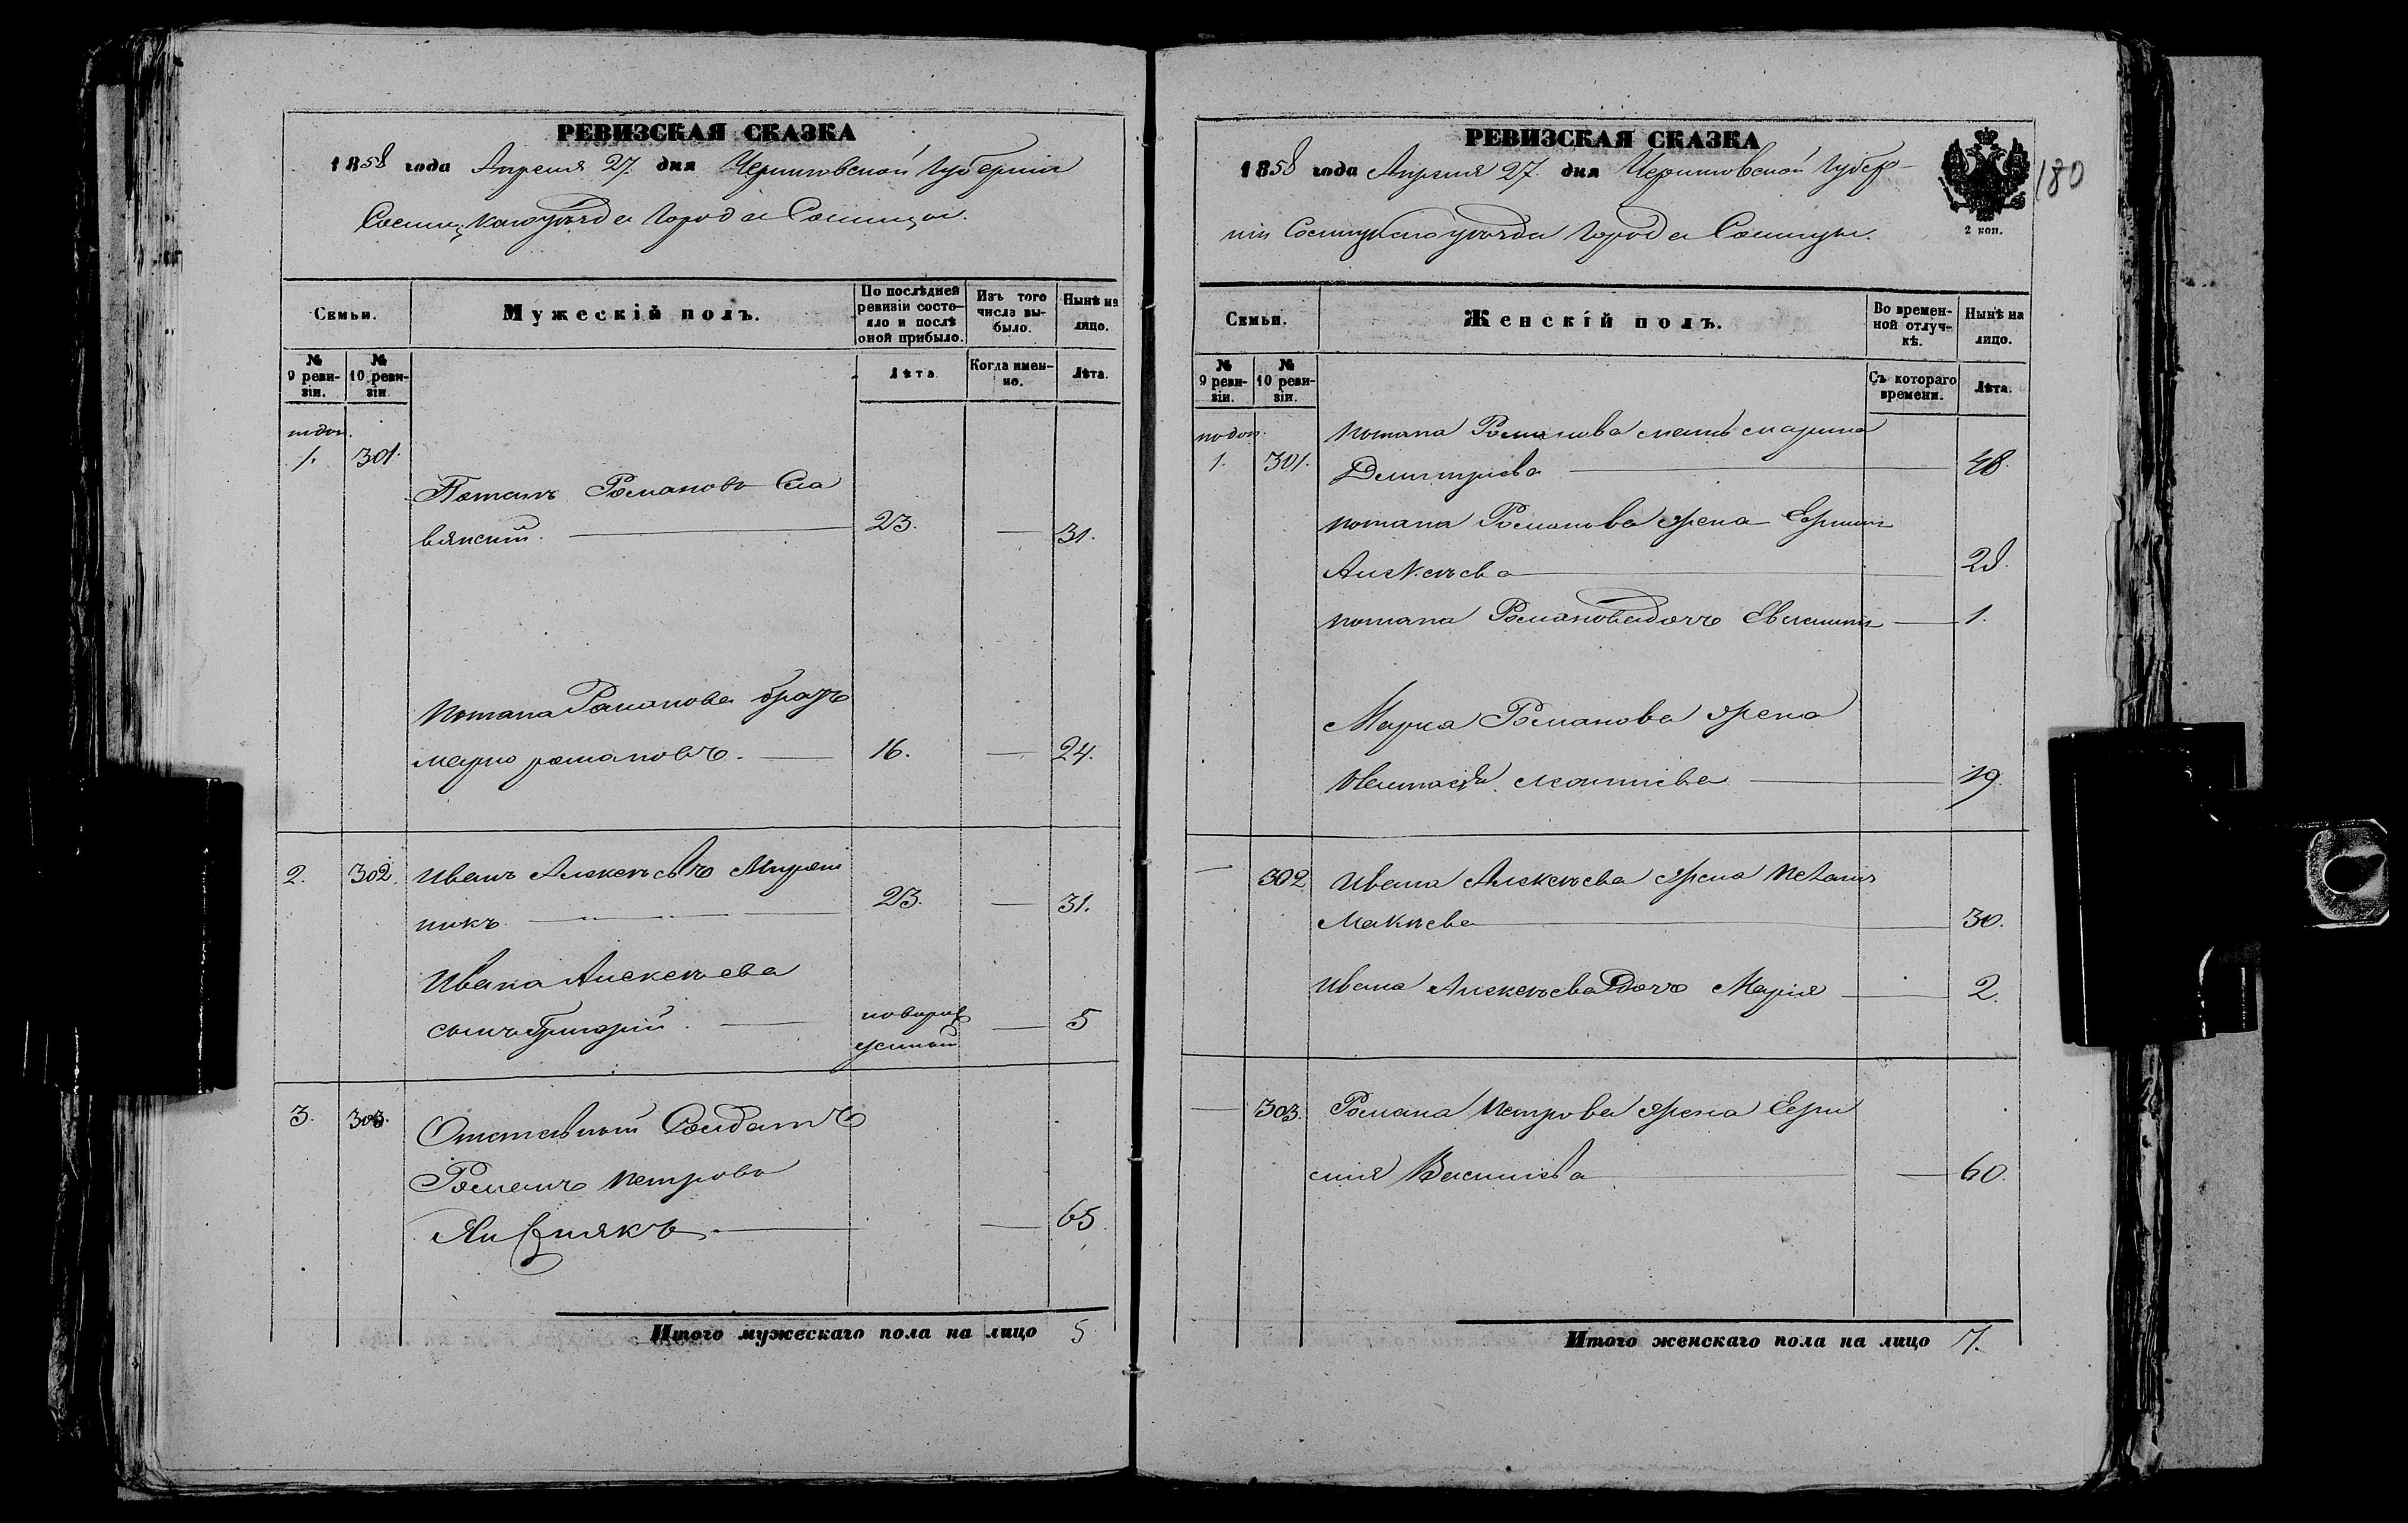 РЕВИЗСКАЯ СКАЗКА
1858 года Апреля 27. дня Черниговской Губерніи
Сосницкаго уѣзда Города Сосницы.
Семьи.
Мужескій полъ.
По послѣдней ревизіи состояло и послѣ оной прибыло.
Изъ того числа выбыло.
Нынѣ на лицо.
№ 9 ревизіи.
№ 10 ревизіи.
Лѣта
Когда именно.
Лѣта.
по доп.
1. 301.
Потапъ Романовъ Сла
вянскій. 23. — 31.
Потапа Романова братъ
Марко Романовъ. 16. — 24.
2. 302. Иванъ Алексѣевъ Мирош
никъ. 23. — 31.
Ивана Алексѣева
сынъ Григорій. новорож
денный — 5
3. 303. Отставной Солдатъ
Романъ Петровъ
— 65.
Итого мужескаго пола на лицо 5.
РЕВИЗСКАЯ СКАЗКА
1858 года Апреля 27. дня Черниговской Губер-
ніи Сосницкаго уѣзда Города Сосницы.
2 коп.
180
Семьи.
Женскій полъ.
Во временной отлучкѣ.
Нынѣ на лицо.
№ 9 ревизіи.
№ 10 ревизіи.
Съ котораго времени.
Лѣта.
по доп.
1. 301.
Потапа Романова мать Марина
Дмитриева 48.
Потапа Романова жена
Алексѣева 28.
Потапа Романова дочь 1.
Марка Романова жена
19.
— 302 Ивана Алексѣева жена
30.
Ивана Алексѣева дочь Марія 2.
— 303. Романа Петрова жена
Василіева — 60.
Итого женскаго пола на лицо 7.